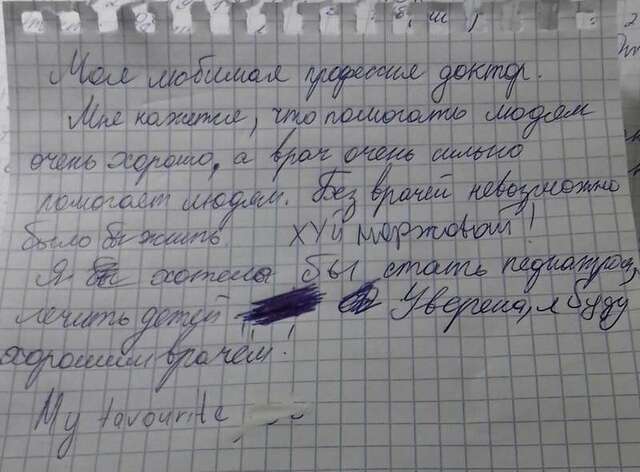 Моя любимая профессия доктор.
Мне кажется, что помогать людям
очень хорошо, а врач очень сильно
помогает людям. Без врачей невозможно
было бы жить ХУЙ МОРЖОВЫЙ!
Я хотела бы стать педиатром,
лечить детей Уверена, я буду
хорошим врачём!
My favourite